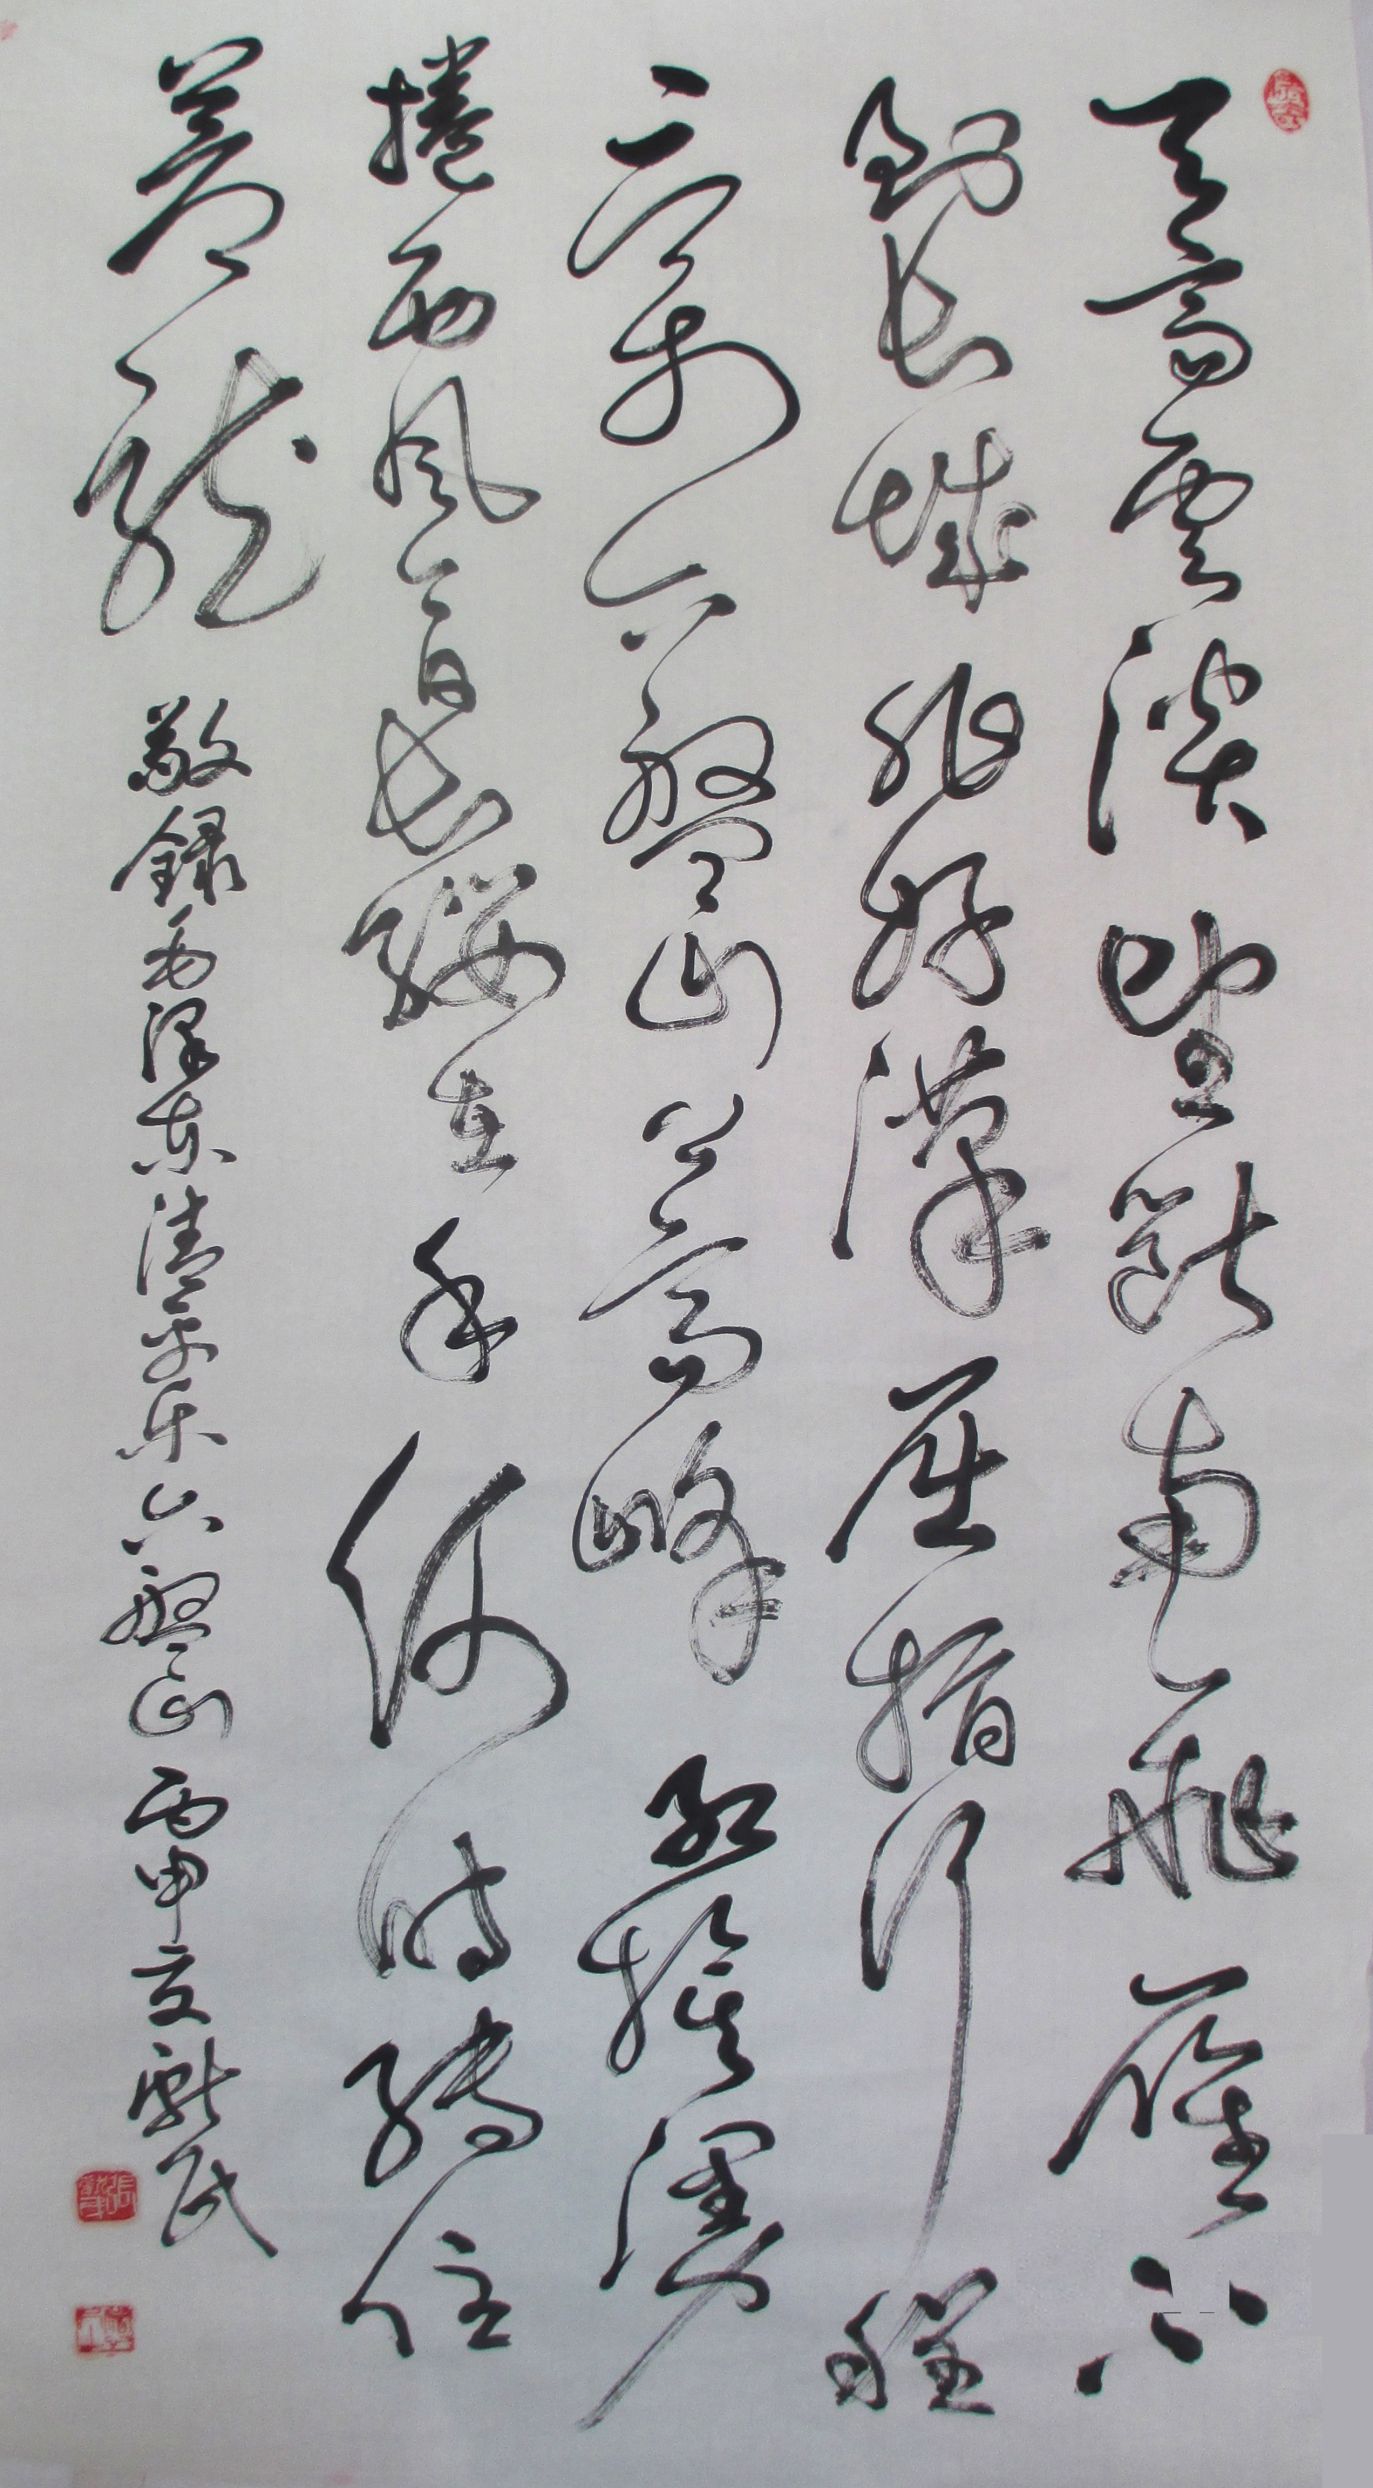 天高云淡望断南飞雁不
到长城非好汉屈指行程
二万六盘山上高峰红旗漫
捲西风今日长缨在手何时缚住
苍龙
敬录毛泽东清平乐六盘山丙申夏献民